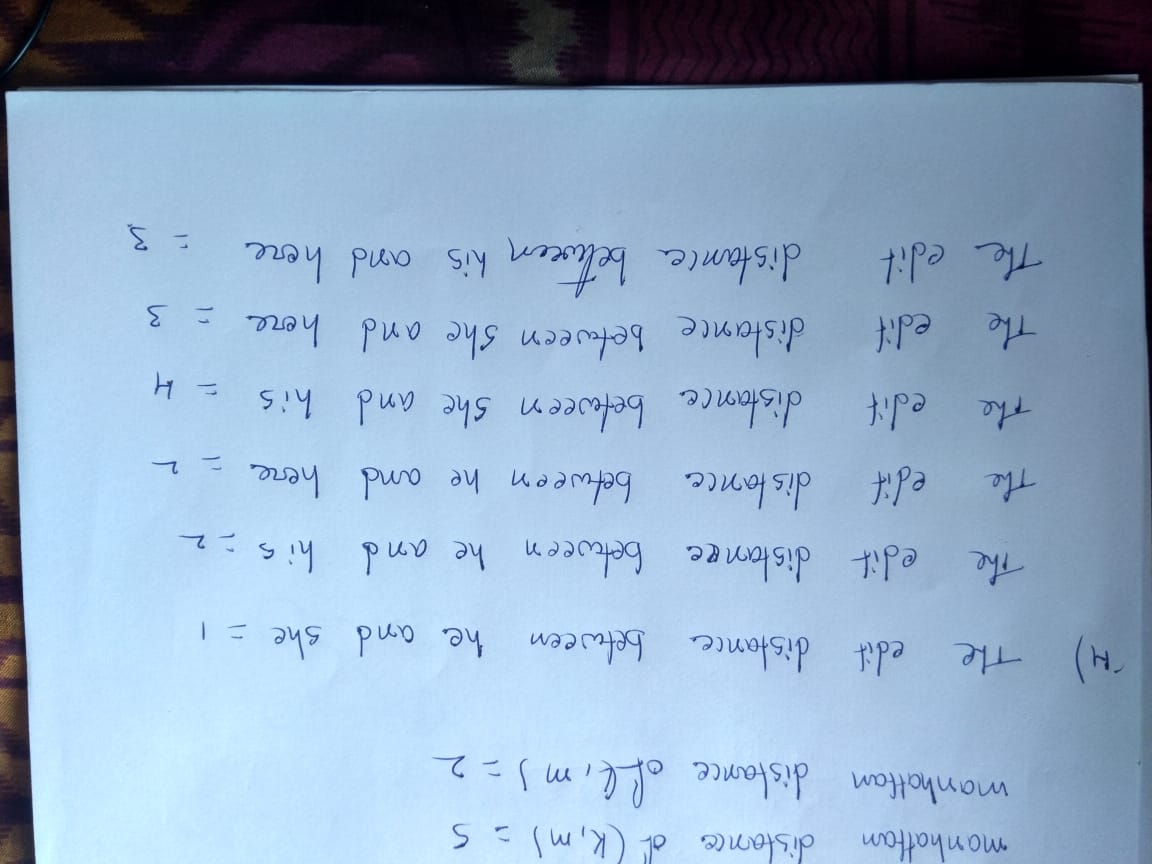 manhattan distance of (k, m) = 5
manhattan distance of (l, m) = 2
4) The edit distance between he and she = 1
The edit distance between he and his = 2
The edit distance between he and here = 2
The edit distance between she and his = 4
The edit distance between she and here = 3
The edit distance between his and here = 3